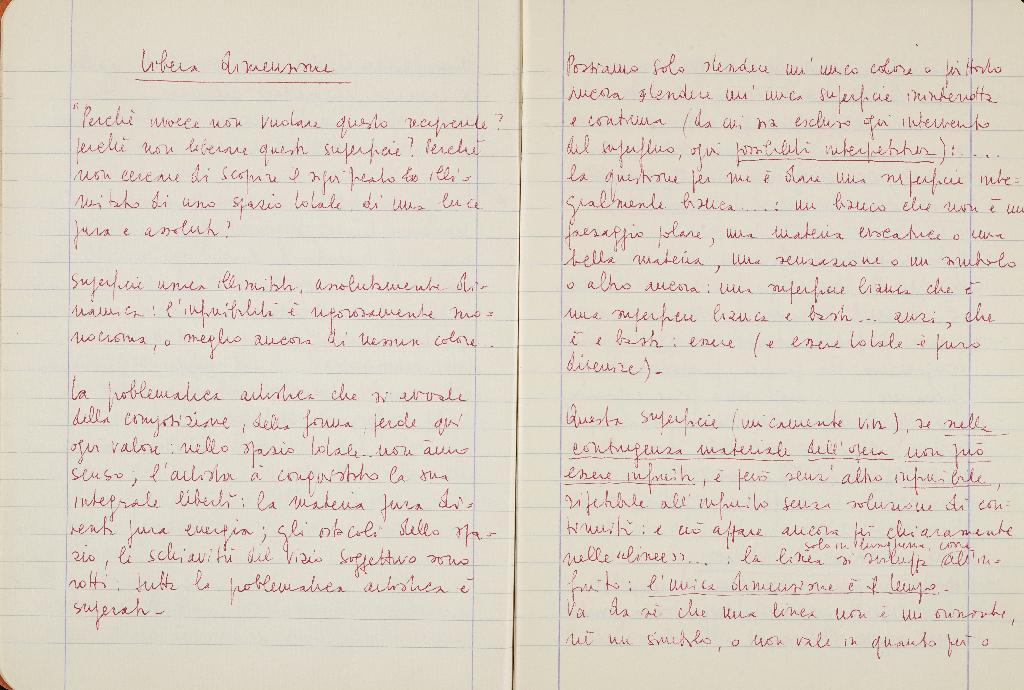 Libera dimensione
"Perchè invece non vuotare questo recipiente?
perchè non liberare questa superficie? Perchè
non cercare di scoprire il significato illi-
mitato di uno spazio totale, di una luce
pura e assoluta?
Superficie unica illimitata, assolutamente di-
namica: l'infinibilità è rigorosamente mo-
nocroma, o meglio ancora di nessun colore.
La problematica artistica che si avvale
della composizione, della forma, perde qui
ogni valore: nello spazio totale non ànno
senso; l'artista à conquistato la sua
integrale libertà: la materia pura di-
venta pura energia; gli ostacoli dello spa-
zio, le schiavitù del vizio soggettivo sono
rotti: tutta la problematica artistica è
superata -
Possiamo solo stendere un'unico colore o piuttosto
ancora stendere un'unica superficie ininterrotta
e continua (da cui sia escluso ogni intervento
del superfluo, ogni possibilità interpretativa): ....
la questione per me è dare una superficie inte-
gralmente bianca....: un bianco che non è un
paesaggio polare, una materia evocatrice o una
bella materia, una sensazione o un simbolo
o altro ancora: una superficie bianca che è
una superficie bianca e basta... anzi, che
è e basta: essere (e essere totale è puro
divenire) -
Questa superficie (unicamente viva), se nella
contingenza materiale dell'opera non può
essere infinita, è però senz'altro infinibile,
ripetibile all'infinito senza soluzione di con-
tinuità: e ciò appare ancora più chiaramente
nelle "linee"....: la linea si sviluppa solo in lunghezza, corre all'in-
finito: l'unica dimensione è il tempo.
Va da sè che una linea non è un orizzonte,
nè un simbolo, e non vale in quanto più o